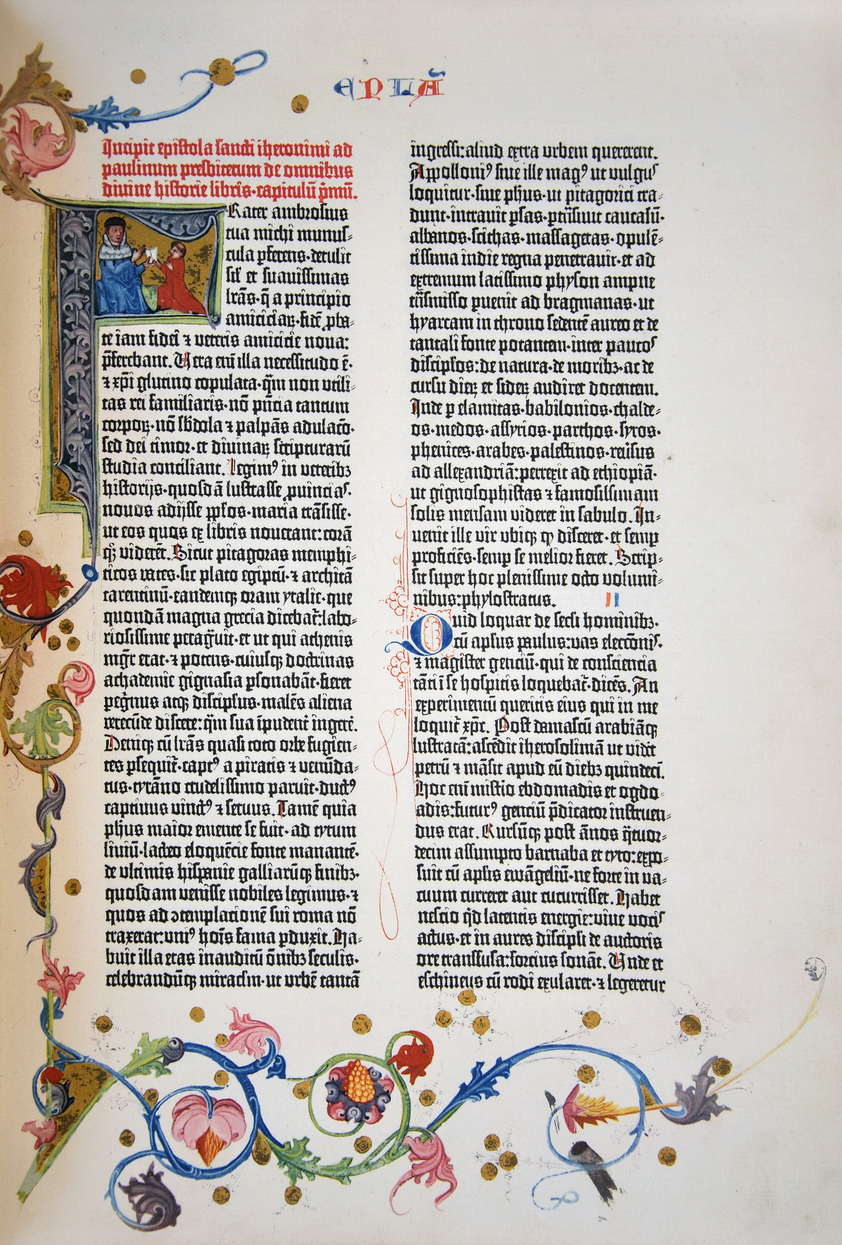 EPLÃ
Incipit epistola sancti iheronimi ad
paulinum presbiterum de omnibus
divine historie libris·capitulū p̄mū.
Frater ambrosius
tua michi munus-
cula ꝑferens·detulit
sil̄ et suavissimas
lr̄as·q̄ a principio
amiciciaꝝ·fidē ꝓba-
te iam fidei ⁊ veteris amicicie nova:
p̄ferebant. Vera em̄ illa necessitudo ē·
⁊ xp̄i glutino copulata·qm̄ non utili-
tas rei familiaris·nō pn̄cia tantum
corpoꝝ·nō sb̄dola ⁊ palpās adulacō·
sed dei timor·et divinaꝝ scripturarū
studia conciliant. Legimꝰ in veteribꝫ
historijs·quosdā lustrasse ꝓvincias·
novos adijsse ppl̄os·maria trāsisse·
ut eos quos ex libris noverant: corā
qꝫ viderēt. Sicut pitagoras memphi-
ticos vates·sic plato egiptū·⁊ architā
tarentinū·eandemqꝫ oram ytalie·que
quondā magna grecia dicebat̄: labo-
riosissime peragͥvit·et ut qui athenis
mgr̄ erat·⁊ potens·cuiusqꝫ doctrinas
achademie gignasia ꝑsonabāt·fieret
peg̍rinus atqꝫ discipulus·malēs aliena
verecūde discere: qm̄ sua īpudent̄ ingerē.
Deniqꝫ cū lr̄as quasi toto orbe fugien-
tes ꝑsequit̄·captꝰ a piratis ⁊ venūda-
tus·tyrāno crudelissimo paruit·ductꝰ
captivus vinctꝰ ⁊ servus. Tamē quia
ph̄us maior emente se fuit·ad tytum
liviū·lacteo eloquēcie fonte manantē·
de ultimis hispanie galliarūqꝫ finibꝫ·
quosdam venisse nobiles legimus·⁊
quos ad ꝯtemplacionē sui roma nō
traxerat: unīꝰ hoīs fama ꝑduxit. Ha-
buit illa etas inauditū ōnibꝫ seculis·
celebrandūqꝫ miraclm̄·ut urbē tantā
ingressi: aliud extra urbem quererent.
Appolloniꝰ sive ille magꝰ ut vulgus
loquitur·sive ph̄us·ut pitagorici tra-
dunt·intravit ꝑsas·ꝑtrāsivit caucasū·
albanos·scithas·massagetas·opulē-
tissima indie regna penetravit·et ad
extremum latissimo physon ampne
trāsmisso ꝑvenit ad bragmanas·ut
hyarcam in throno sedentē aureo et de
tantali fonte potantem·inter paucos
discipl̄os: de natura·de moribꝫ·ac de
cursu dieꝝ et sideꝝ audiret docentem.
Inde ꝑ elamitas·babilonios·chalde-
os·medos·assyrios·parthos·syros·
phenices·arabes·palestinos·rev̄sus
ad allexandriā: perrexit ad ethiopiā·
ut gignosophistas ⁊ famosissimam
solis mensam videret in sabulo. In-
venit ille vir ubiqꝫ qͥ disceret·et semꝑ
proficiēs·semꝑ se melior fieret. Scrip-
sit super hoc plenissime octo volumi-
nibus: phylostratus. II
Quid loquar de secl̄i hominibꝫ·
cū apl̄us paulus: vas eleccōnis·
⁊ magister genciū·qui de consciencia
tāti ī se hospitis loquebat̄·dicēs. An
experimentū queritis eius qui in me
loquit̄ xp̄c. Post damascū arabiāqꝫ
lustratā: ascēdit iherosolimā ut videt̄
petrū ⁊ māsit apud eū diebꝫ quindeci.
Hoc em̄ mistio ebdomadis et ogdo-
adis: futurꝰ genciū p̄dicator instruen-
dus erat. Rursūqꝫ post ānos q̄tuor-
decim assumpto barnaba et tyto: expo-
suit cū apl̄is ewāgeliū·ne forte in va-
cuum curreret aut cucurrisset. Habet
nescio qͥd latentis energie: vive vocis
actus·et in aures discipl̄i de auctoris
ore transfusa: forcius sonāt. Unde et
eschineus cū rodi exularet·⁊ legeretur